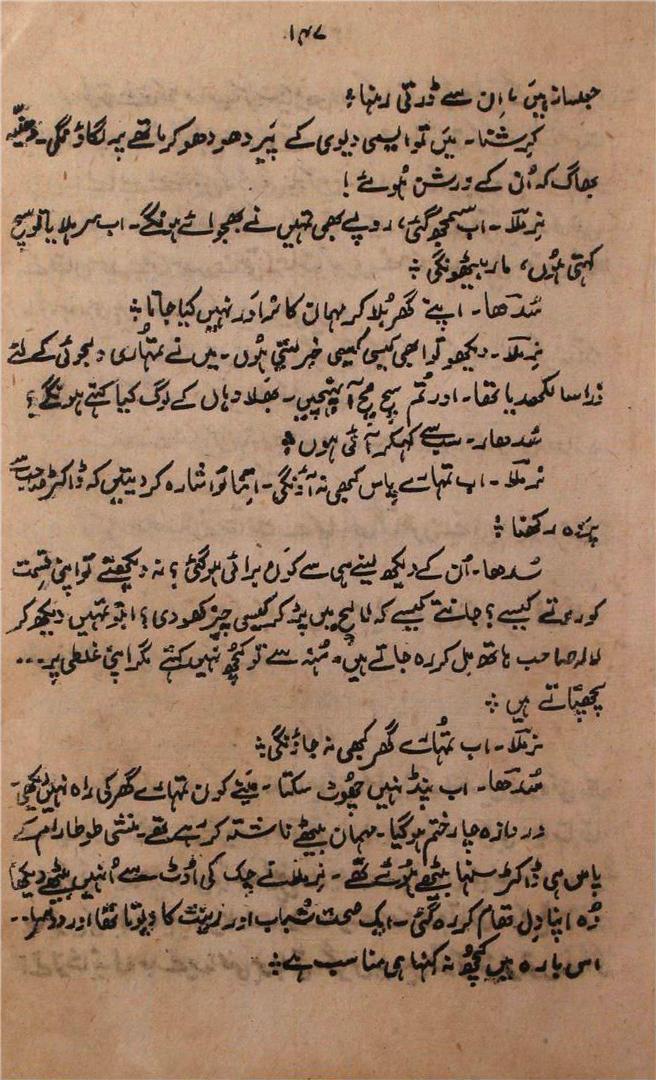 ۱۴۷
جلسانہ ہیں ، اِن سے ڈرتی رہنا ؞
کرشنا۔ میں تو ایسی دیوی کے پَیر دھو دھو کر ماتھے پہ لگاؤنگی۔
بھاگ کہ اُن کے درشن ہُوئے !
نِرملا۔ اب سمجھ گئی، روپے بھی تمہیں نے بھجوائے ہونگے۔ اب سر ہلایا تو سچ
کہتی ہُوں، مار بیٹھونگی ؞
سُدھا۔ اپنے گھر بُلا کر مہمان کا نرادَر نہیں کیا جاتا ؞
نِرملا۔ دیکھو تو ابھی کیسی کیسی خبر لیتی ہُوں۔ میں نے تمہاری دلجوئی کے لئے
ذرا سا لکھدیا تھا۔ اور تُم سچ مُچ آ پہنچیں۔ بھَلا وہاں کے لوگ کیا کہتے ہونگے؟
سُدھا۔ سب سے کہکر آئی ہوں ؞
نِرملا۔ اب تمہارے پاس کبھی نہ آؤنگی۔ اِتنا تو اشارہ کر دیتیں کہ ڈاکٹر صاحب سے
پردہ رکھنا ؞
سُدھا۔ اُن کے دیکھ لینے ہی سے کون بُرائی ہو گئی؟ نہ دیکھتے تو اپنی قِسمت
کو روتے کیسے؟ جانتے کیسے کہ لالچ میں پڑ کر کیسی چیز کھو دی؟ اب تو تمہیں دیکھ کر
لالہ صاحب ہاتھ مل کر رہ جاتے ہیں۔ مُنہ سے تو کچُھ نہیں کہتے مگر اپنی غلطی پر...
پچھتاتے ہیں ؞
نِرملا۔ اب تمُہارے گھر کبھی نہ جاؤنگی ؞
سُدھا۔ اب پنڈ نہیں چھُوٹ سکتا۔ مَینے کون تمہارے گھر کی راہ نہیں دیکھی۔
در دازہ چار ختم ہو گیا۔ مہمان بیٹھے ناشتہ کر رہے تھے۔ منشی طوطا رام کے
پاس ہی ڈاکٹر سنہا بیٹھے ہُوئے تھے۔ نِرملا نے چِک کی اوٹ سے اُنہیں بیٹھے دیکھا
وُہ اپنا دِل تھام کر رہ گئی۔ ایک صحت شباب اور زینت کا دیوتا تھا اور دوسرا..
اس بارہ میں کچُھ نہ کہنا ہی مناسب ہے ؞